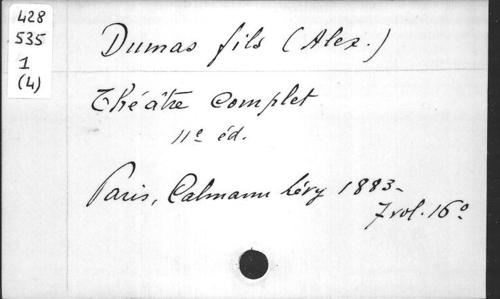 428
535
1
(4)
Dumas fils (Alex.)
Théâtre complet
11e éd.
Paris, Calmann Lévy 1883-
7 vol. 16º